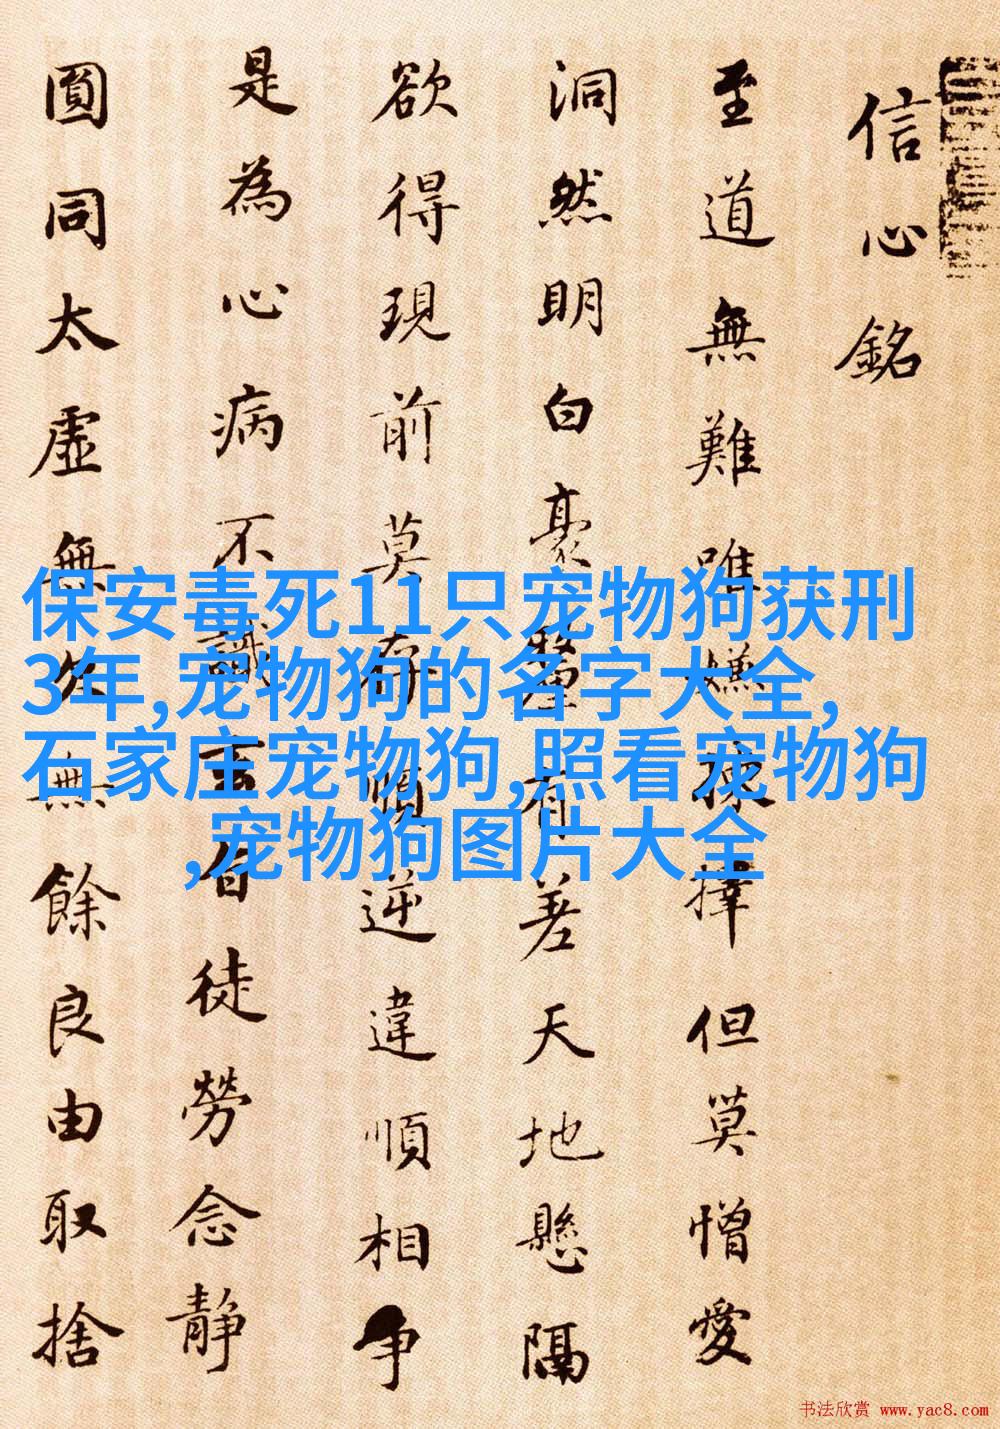 信心銘
至道無難唯嫌揀擇但莫憎愛
洞然明白豪釐有差天地懸隔
欲得現前莫存順逆違順相争
是為心病不識玄旨徒勞念静
圓同太虛無欠無餘良由取捨
保安毒死11只宠物狗获刑
3年,宠物狗的名字大全,
石家庄宠物狗,照看宠物狗
,宠物狗图片大全
书法欣赏 www.yac8.com